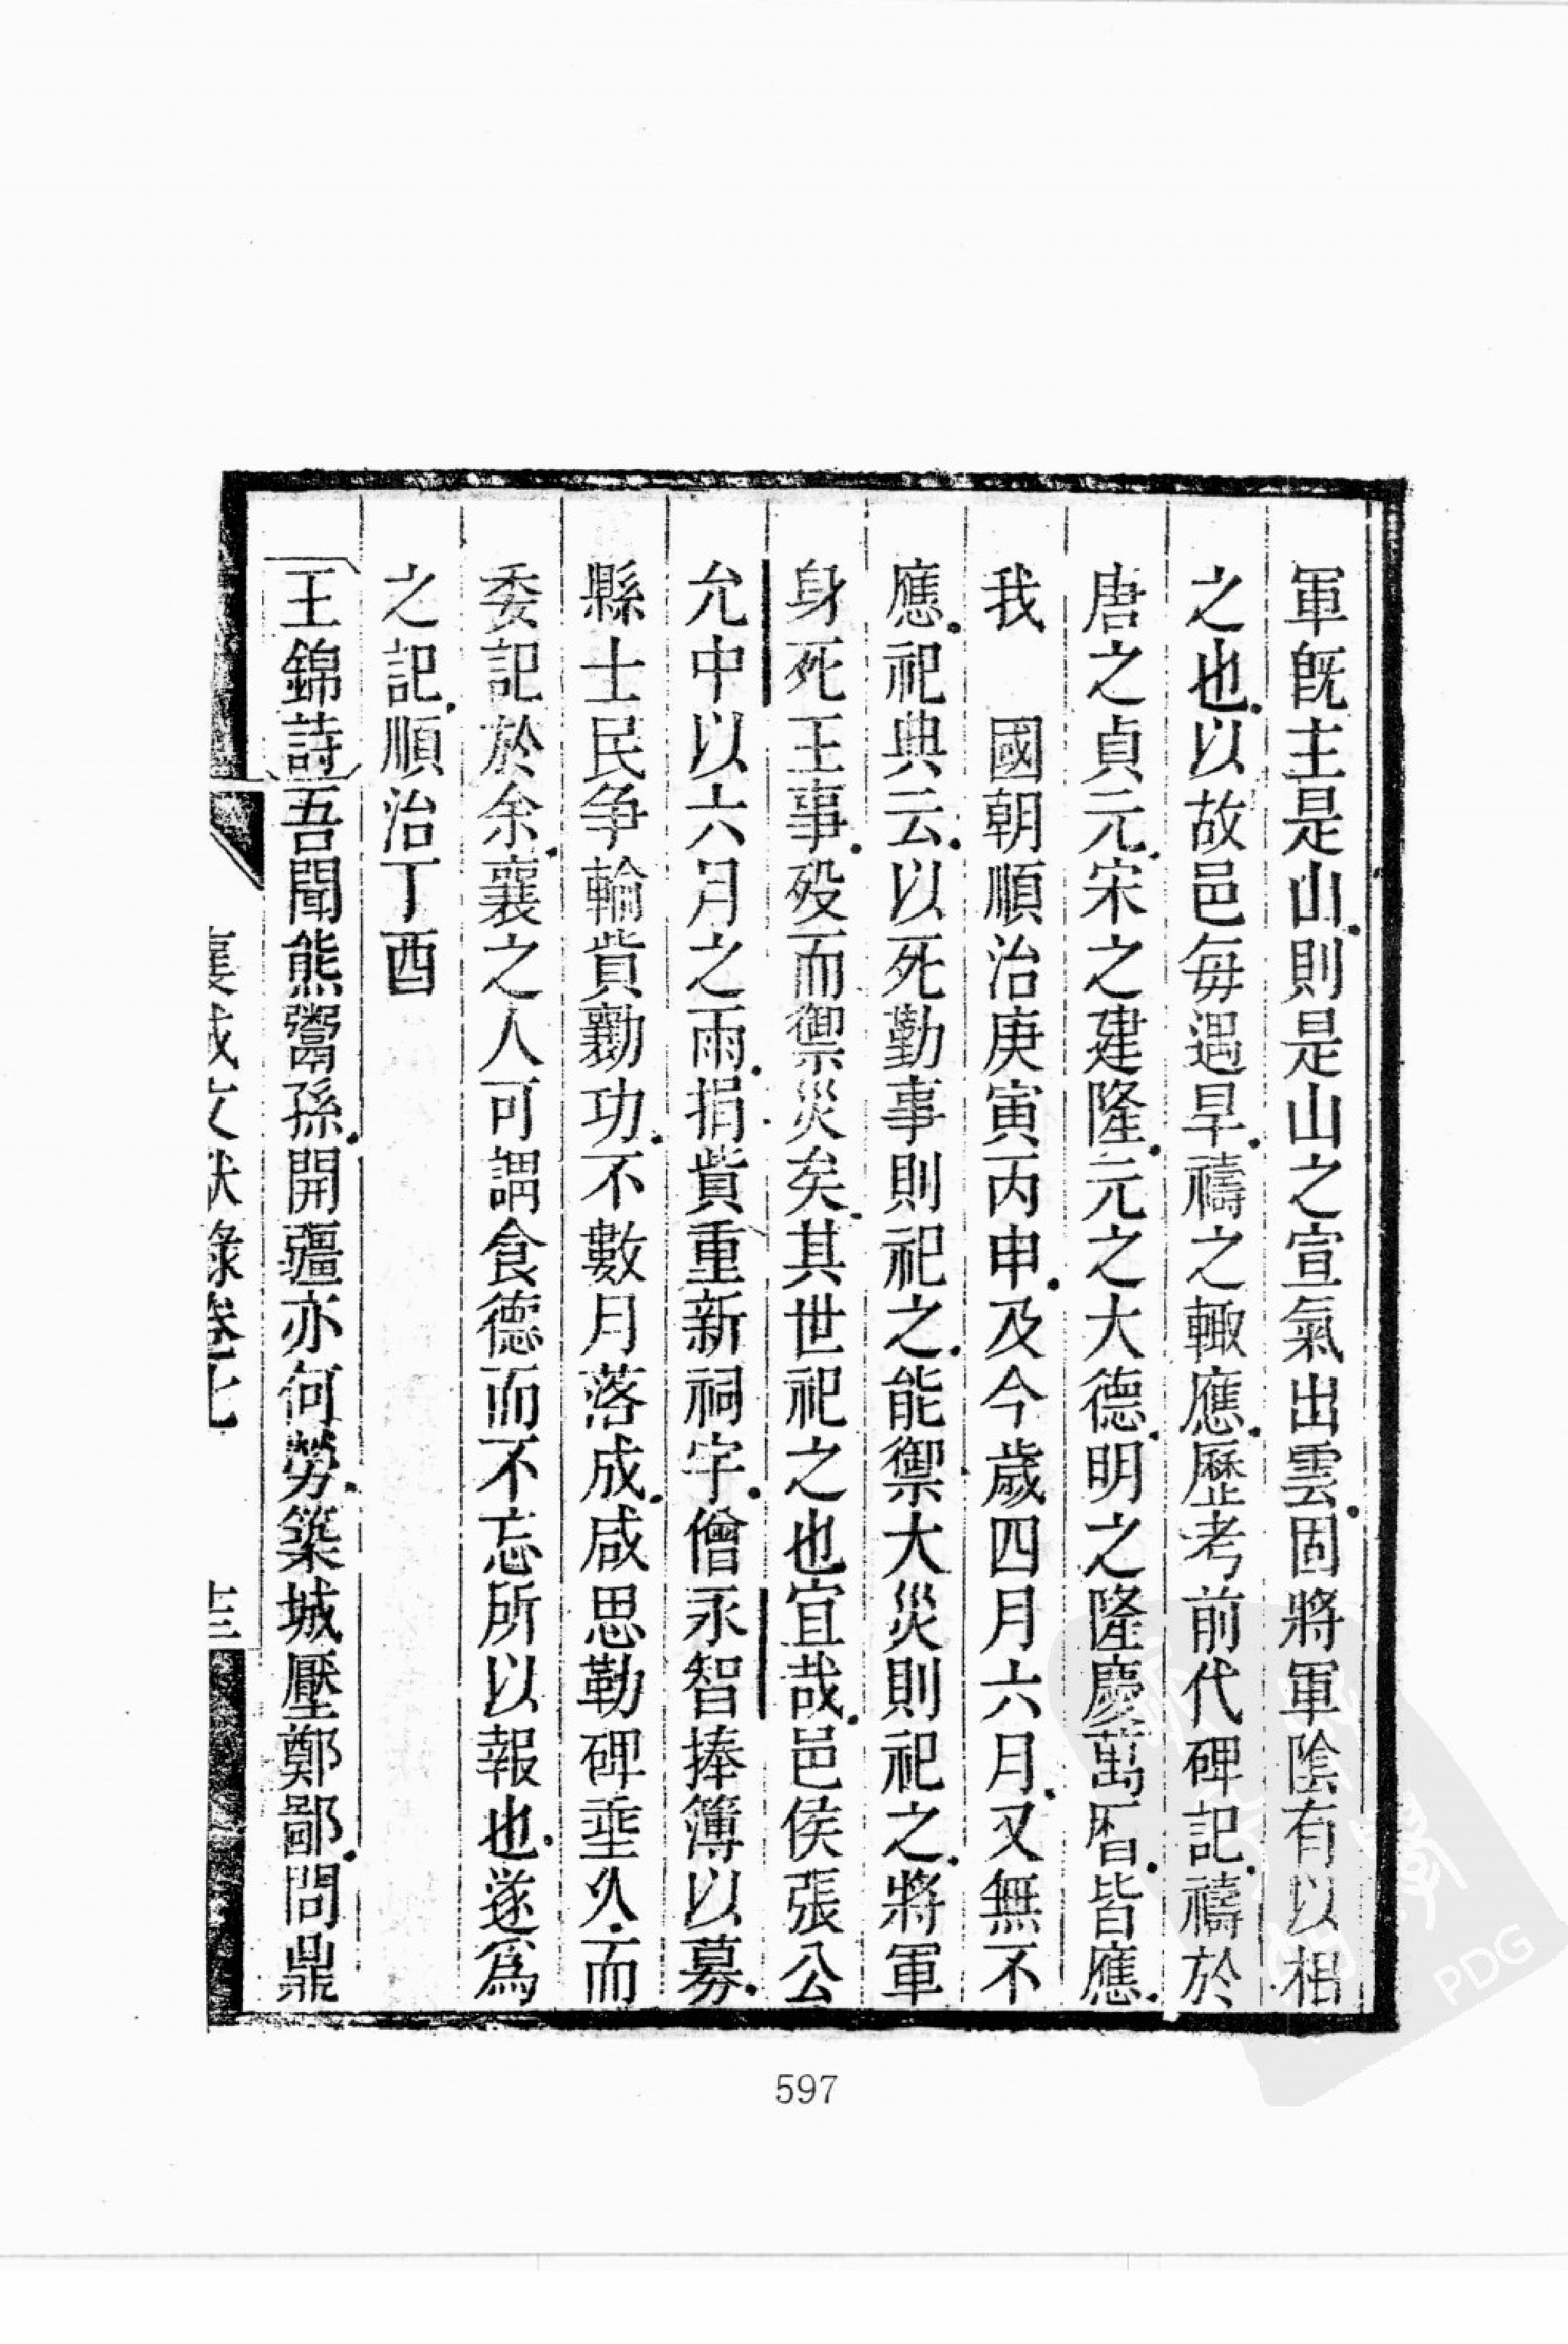 軍旣主是山則是山之宣氣出雲固將軍陰有以相
之也以故邑每遇旱禱之輙應歷考前代碑記禱於
唐之貞元宋之建隆元之大德明之隆慶萬曆皆應
我　國朝順治庚寅丙申及今歲四月六月又無不
應祀典云以死勤事則祀之能禦大災則祀之將軍
身死王事歿而禦災矣其世祀之也宜哉邑侯張公
允中以六月之雨捐貲重新祠宇僧永智捧簿以募
縣士民争輸貲勷功不數月落成咸思勒碑垂久而
委記於余襄之人可謂食德而不忘所以報也遂爲
之記順治丁酉
王錦詩吾聞熊鬻孫開疆亦何勞築城壓鄭鄙問鼎
襄城文獻錄卷七
十三
597
PDG